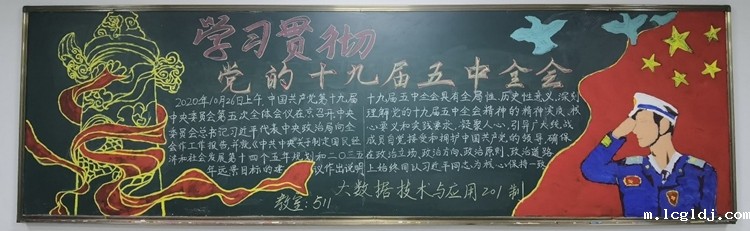 学习贯彻
党的十九届五中全会
2020年10月26日上午,中国共产党第十九届
中央委员会第五次全体会议在京召开,中央
委员会总书记习近平代表中央政治局向全
会作工作报告,并就《中共中央关于制定国民经
济和社会发展第十四个五年规划和二〇三五
年远景目标的建议作出说明
十九届五中全会具有全局性、历史性意义,深刻
理解党的十九届五中全会精神的精神实质、核
心要义和实践要求,凝聚人心,引导广大
成员自觉接受和拥护中国共产党的领导,确保
在政治立场、政治方向、政治原则、政治道路
上始终同以习近平同志为核心保持一致
大数据技术与应用201制
教室:511
m.lcgldj.com